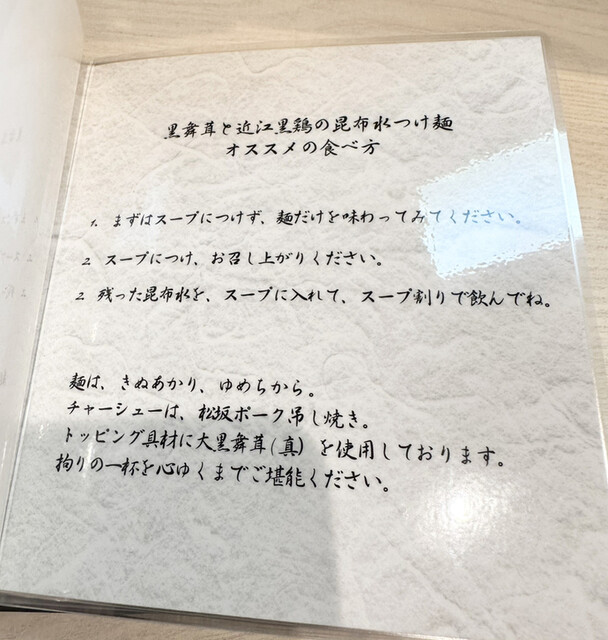 黒舞茸と近江黒鶏の昆布水つけ麺
オススメの食べ方
1. まずはスープにつけず、麺だけを味わってみてください。
2. スープにつけ、お召し上がりください。
2. 残った昆布水を、スープに入れて、スープ割りで飲んでね。
麺は、きぬあかり、ゆめちから。
チャーシューは、松坂ポーク吊し焼き。
トッピング具材に大黒舞茸(真)を使用しております。
拘りの一杯を心ゆくまでご堪能ください。